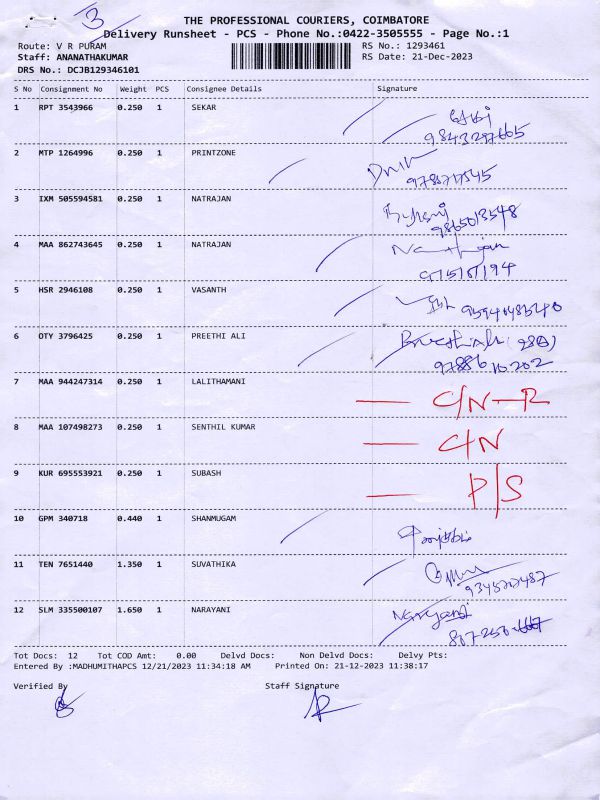 3
THE PROFESSIONAL COURIERS, COIMBATORE
Delivery Runsheet - PCS - Phone No.:0422-3505555 - Page No.:1
Route: V R PURAM RS No.: 1293461
Staff: ANANATHAKUMAR RS Date: 21-Dec-2023
DRS No.: DCJB129346101
S No Consignment No Weight PCS Consignee Details Signature
1 RPT 3543966 0.250 1 SEKAR
2 MTP 1264996 0.250 1 PRINTZONE
3 IXM 505594581 0.250 1 NATRAJAN
9865013548
4 MAA 862743645 0.250 1 NATRAJAN
5 HSR 2946108 0.250 1 VASANTH
6 OTY 3796425 0.250 1 PREETHI ALI
9788610202
7 MAA 944247314 0.250 1 LALITHAMANI C/N-R
8 MAA 107498273 0.250 1 SENTHIL KUMAR C/N
9 KUR 695553921 0.250 1 SUBASH P/S
10 GPM 340718 0.440 1 SHANMUGAM
11 TEN 7651440 1.350 1 SUVATHIKA
12 SLM 335500107 1.650 1 NARAYANI Narayani
Tot Docs: 12 Tot COD Amt: 0.00 Delvd Docs: Non Delvd Docs: Delvy Pts:
Entered By :MADHUMITHAPCS 12/21/2023 11:34:18 AM Printed On: 21-12-2023 11:38:17
Verified By Staff Signature